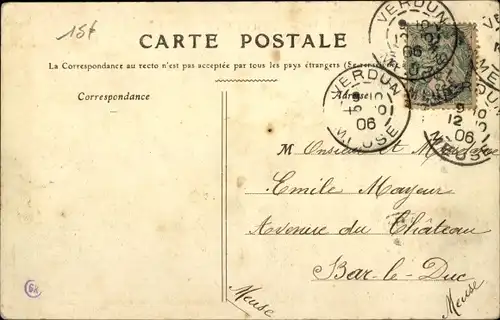 15f
CARTE POSTALE
La Correspondance au recto n'est pas acceptée par tous les pays étrangers (Se renseigner)
Correspondance
Adresse
VERDUN
9 10
12 01
06
MEUSE
VERDUN
06
MEUSE
9 10
12
06
MEUSE
M Onsieur et Madame
Emile Mayeur
Avenue du Château
Bar-le-Duc
Meuse
Meuse